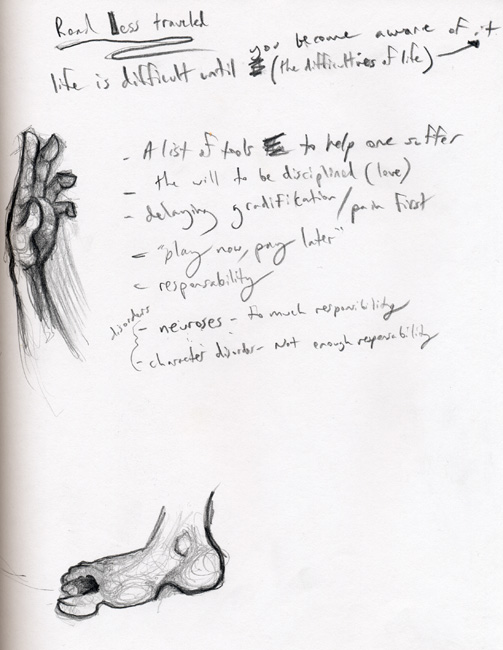 Road Less traveled
life is difficult until you become aware of it
(the difficulties of life)
- A list of tools to help one suffer
- the will to be disciplined (love)
- delaying gradification/pain first
- "play now, pay later"
- responsability
disorders
- neuroses - to much responsibility
- character disorder - Not enough responsability